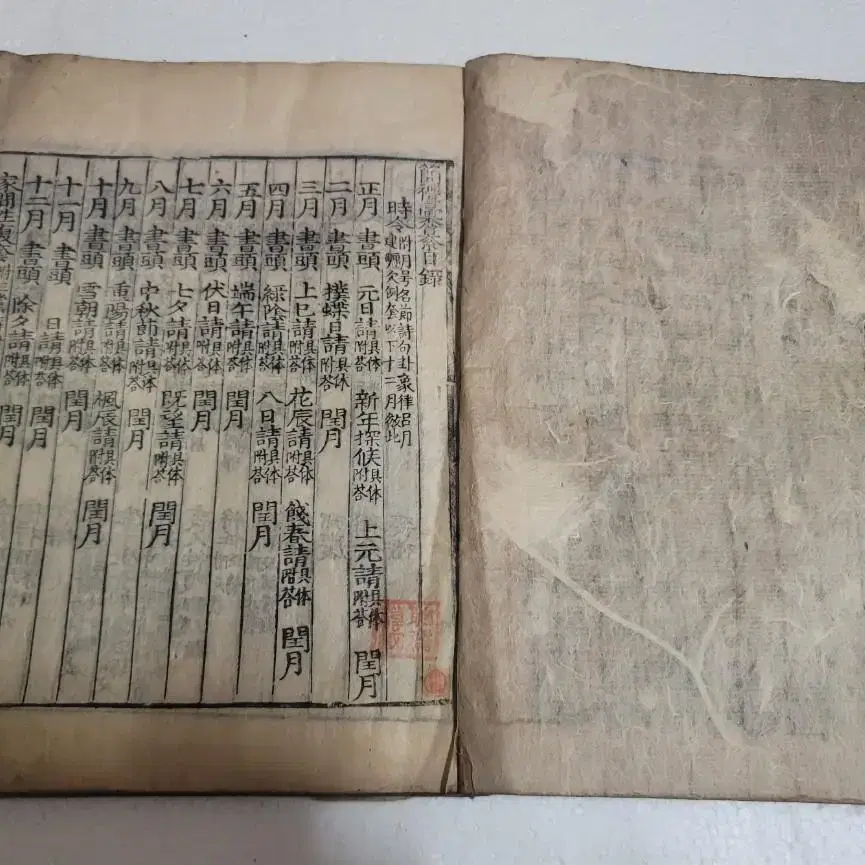 簡禮彙叅目錄
時令附月号名節詩句卦象律呂月
正月 書頭 元日請具体附答 新年探候具体附答 上元請具体附答 閏月
二月 書頭 撲蝶日請具体附答 閏月
三月 書頭 上巳請具体附答 花辰請具体附答 餞春請具体附答 閏月
四月 書頭 綠陰請具体附答 八日請具体附答 閏月
五月 書頭 端午請具体附答 閏月
六月 書頭 伏日請具体附答 閏月
七月 書頭 七夕請具体附答 既望請具体附答 閏月
八月 書頭 中秋節請具体附答 閏月
九月 書頭 重陽請具体附答 楓辰請具体附答 閏月
十月 書頭 雪朝請具体附答 閏月
十一月 書頭 日請具体附答 閏月
十二月 書頭 除夕請具体附答 閏月